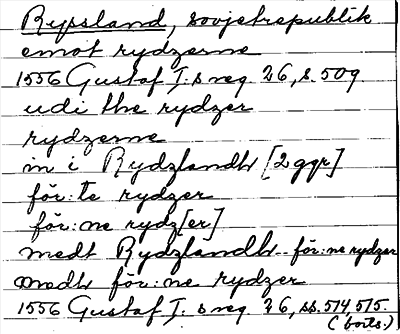 Ryssland, sovjetrepublik
emot rydzerne
1556 Gustaf I:s reg. 26, s. 509.
udi the rydzer
rydzerne
in i Rydzlandh [2 ggr]
för:te rydzer
för:ne rydz[er]
medt Rydzlandh - för:ne rydzer
medh för:ne rydzer
1556 Gustaf I:s reg. 26, ss. 514, 515.
(forts.)